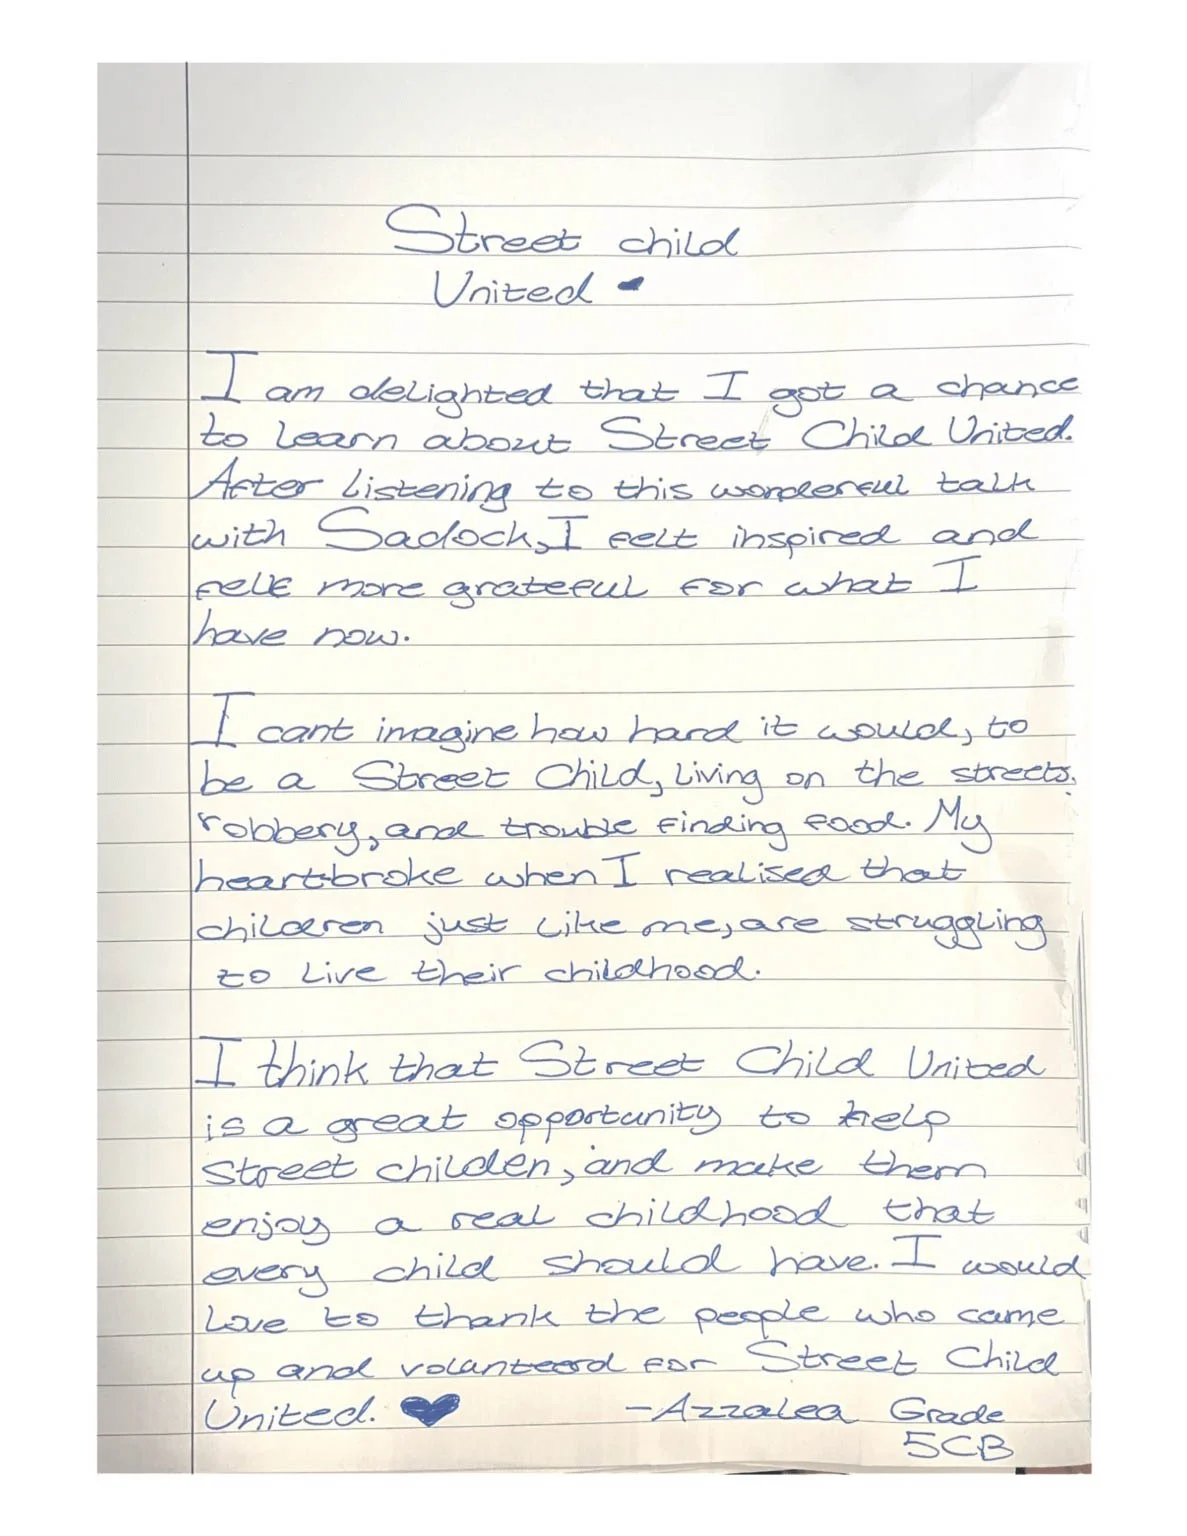 Street child
United
I am delighted that I got a chance
to learn about Street Child United.
After listening to this wonderful talk
with Sadock, I felt inspired and
felt more grateful for what I
have now.
I cant imagine how hard it would, to
be a Street Child, living on the streets,
robbery, and trouble finding food. My
heartbroke when I realised that
children just like me, are struggling
to live their childhood.
I think that Street Child United
is a great opportunity to help
street childen, and make them
enjoy a real childhood that
every child should have. I would
love to thank the people who came
up and volanteerd for Street Child
United. ♥ -Azzalea Grade
5CB